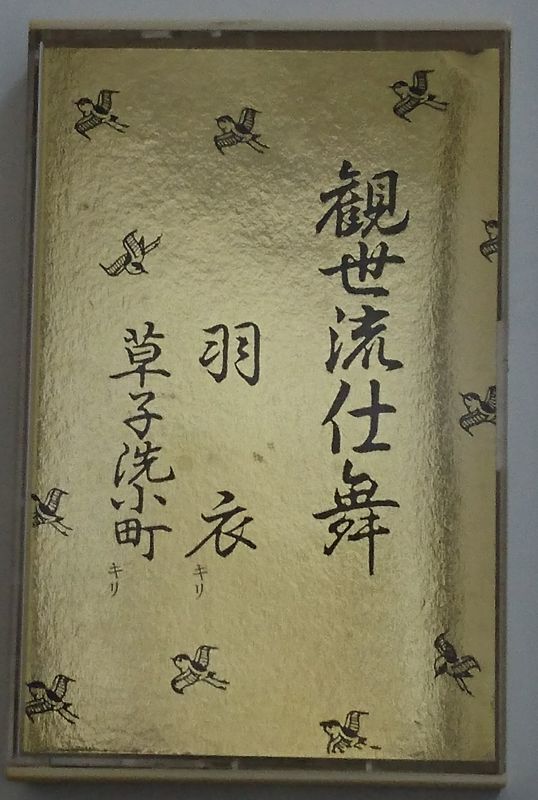 観世流仕舞
羽衣キリ
草子洗小町キリ